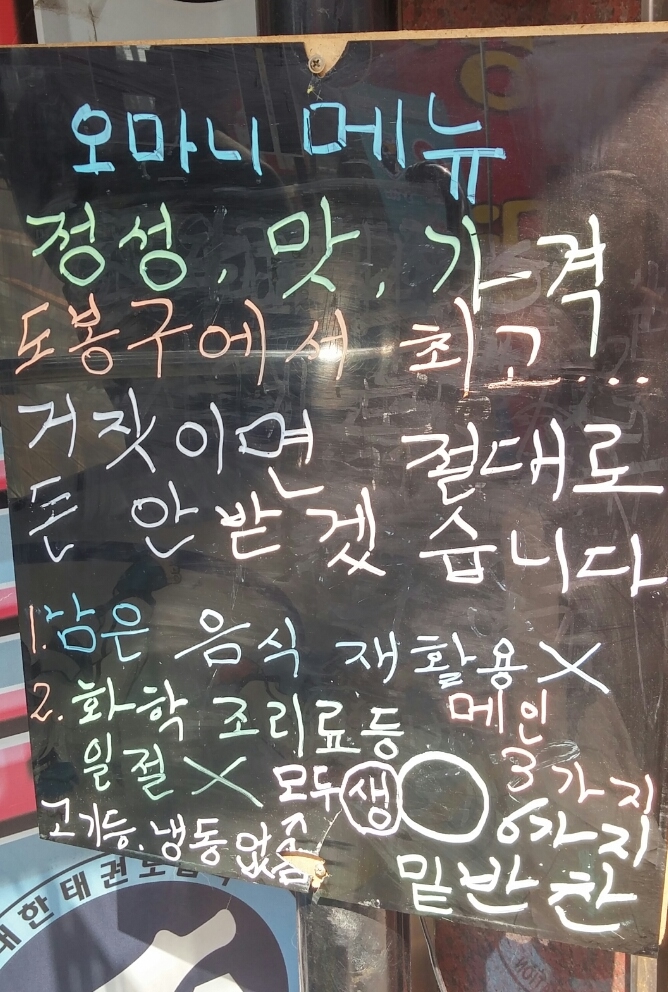 오마니 메뉴
정성, 맛, 가격
도봉구에서 최고...
거짓이면 절대로
돈 안받겠습니다
1. 남은 음식 재활용 X
2. 화학 조리료등
일절 X
메인
3가지
모두 생 ○
6가지
밑반찬
고기등. 냉동 없음
대한태권도